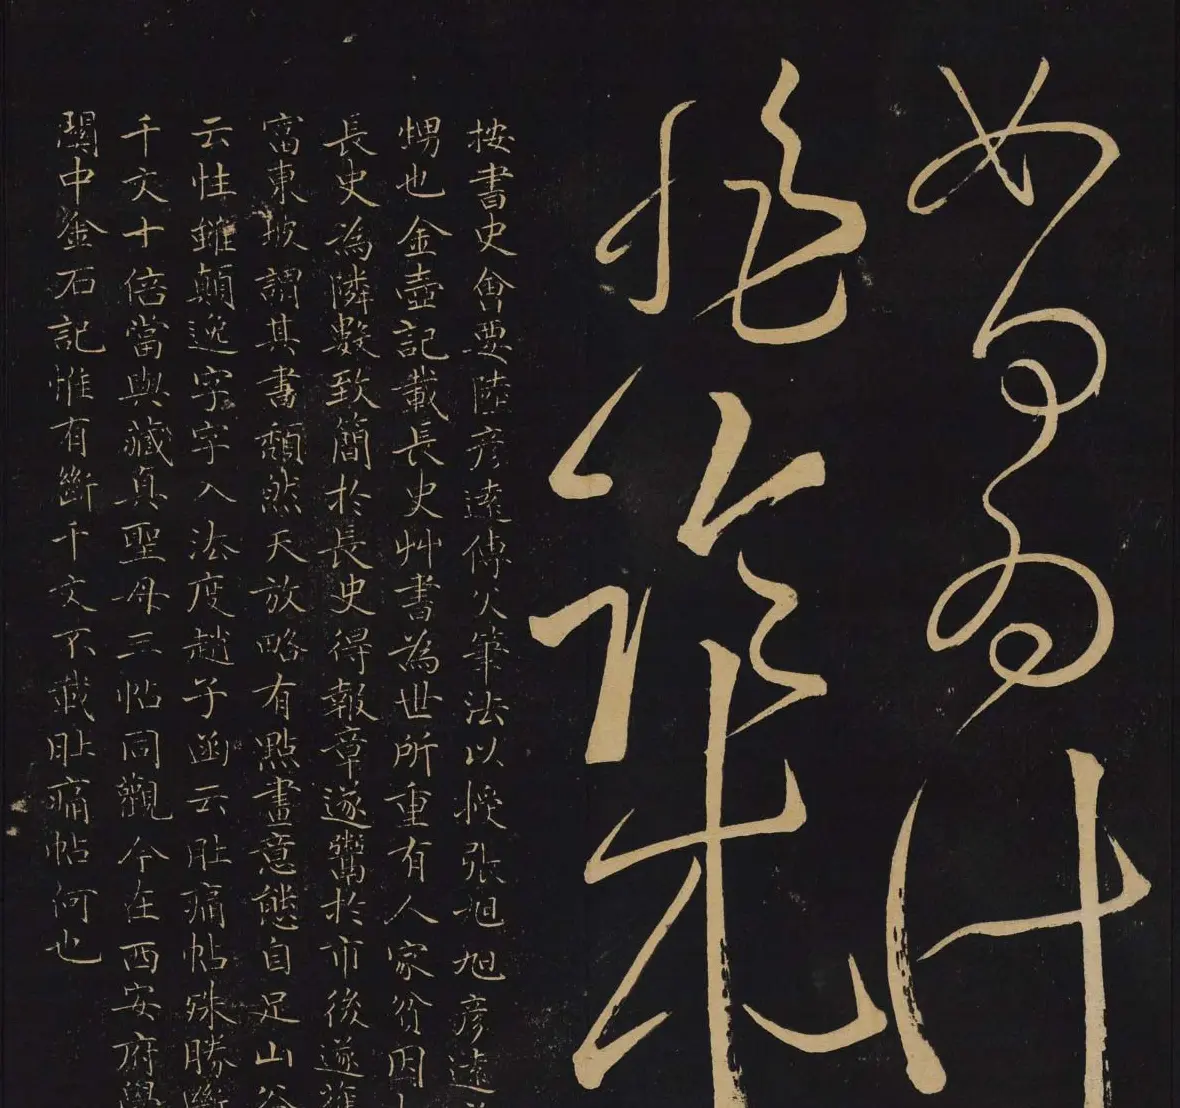 如何為計
按書史會要陸彥遠傳父筆法以授張旭旭彥遠
甥也金壺記載長史艸書為世所重有人家貧因
長史為隣數致簡於長史得報章遂鬻於市後遂
富東坡謂其書頹然天放略有點畫意態自足山谷
云性雖顛逸字字入法度趙子函云肚痛帖殊勝斷
千文十倍當與藏真聖母三帖同觀今在西安府學
關中金石記惟有斷千文不載肚痛帖何也